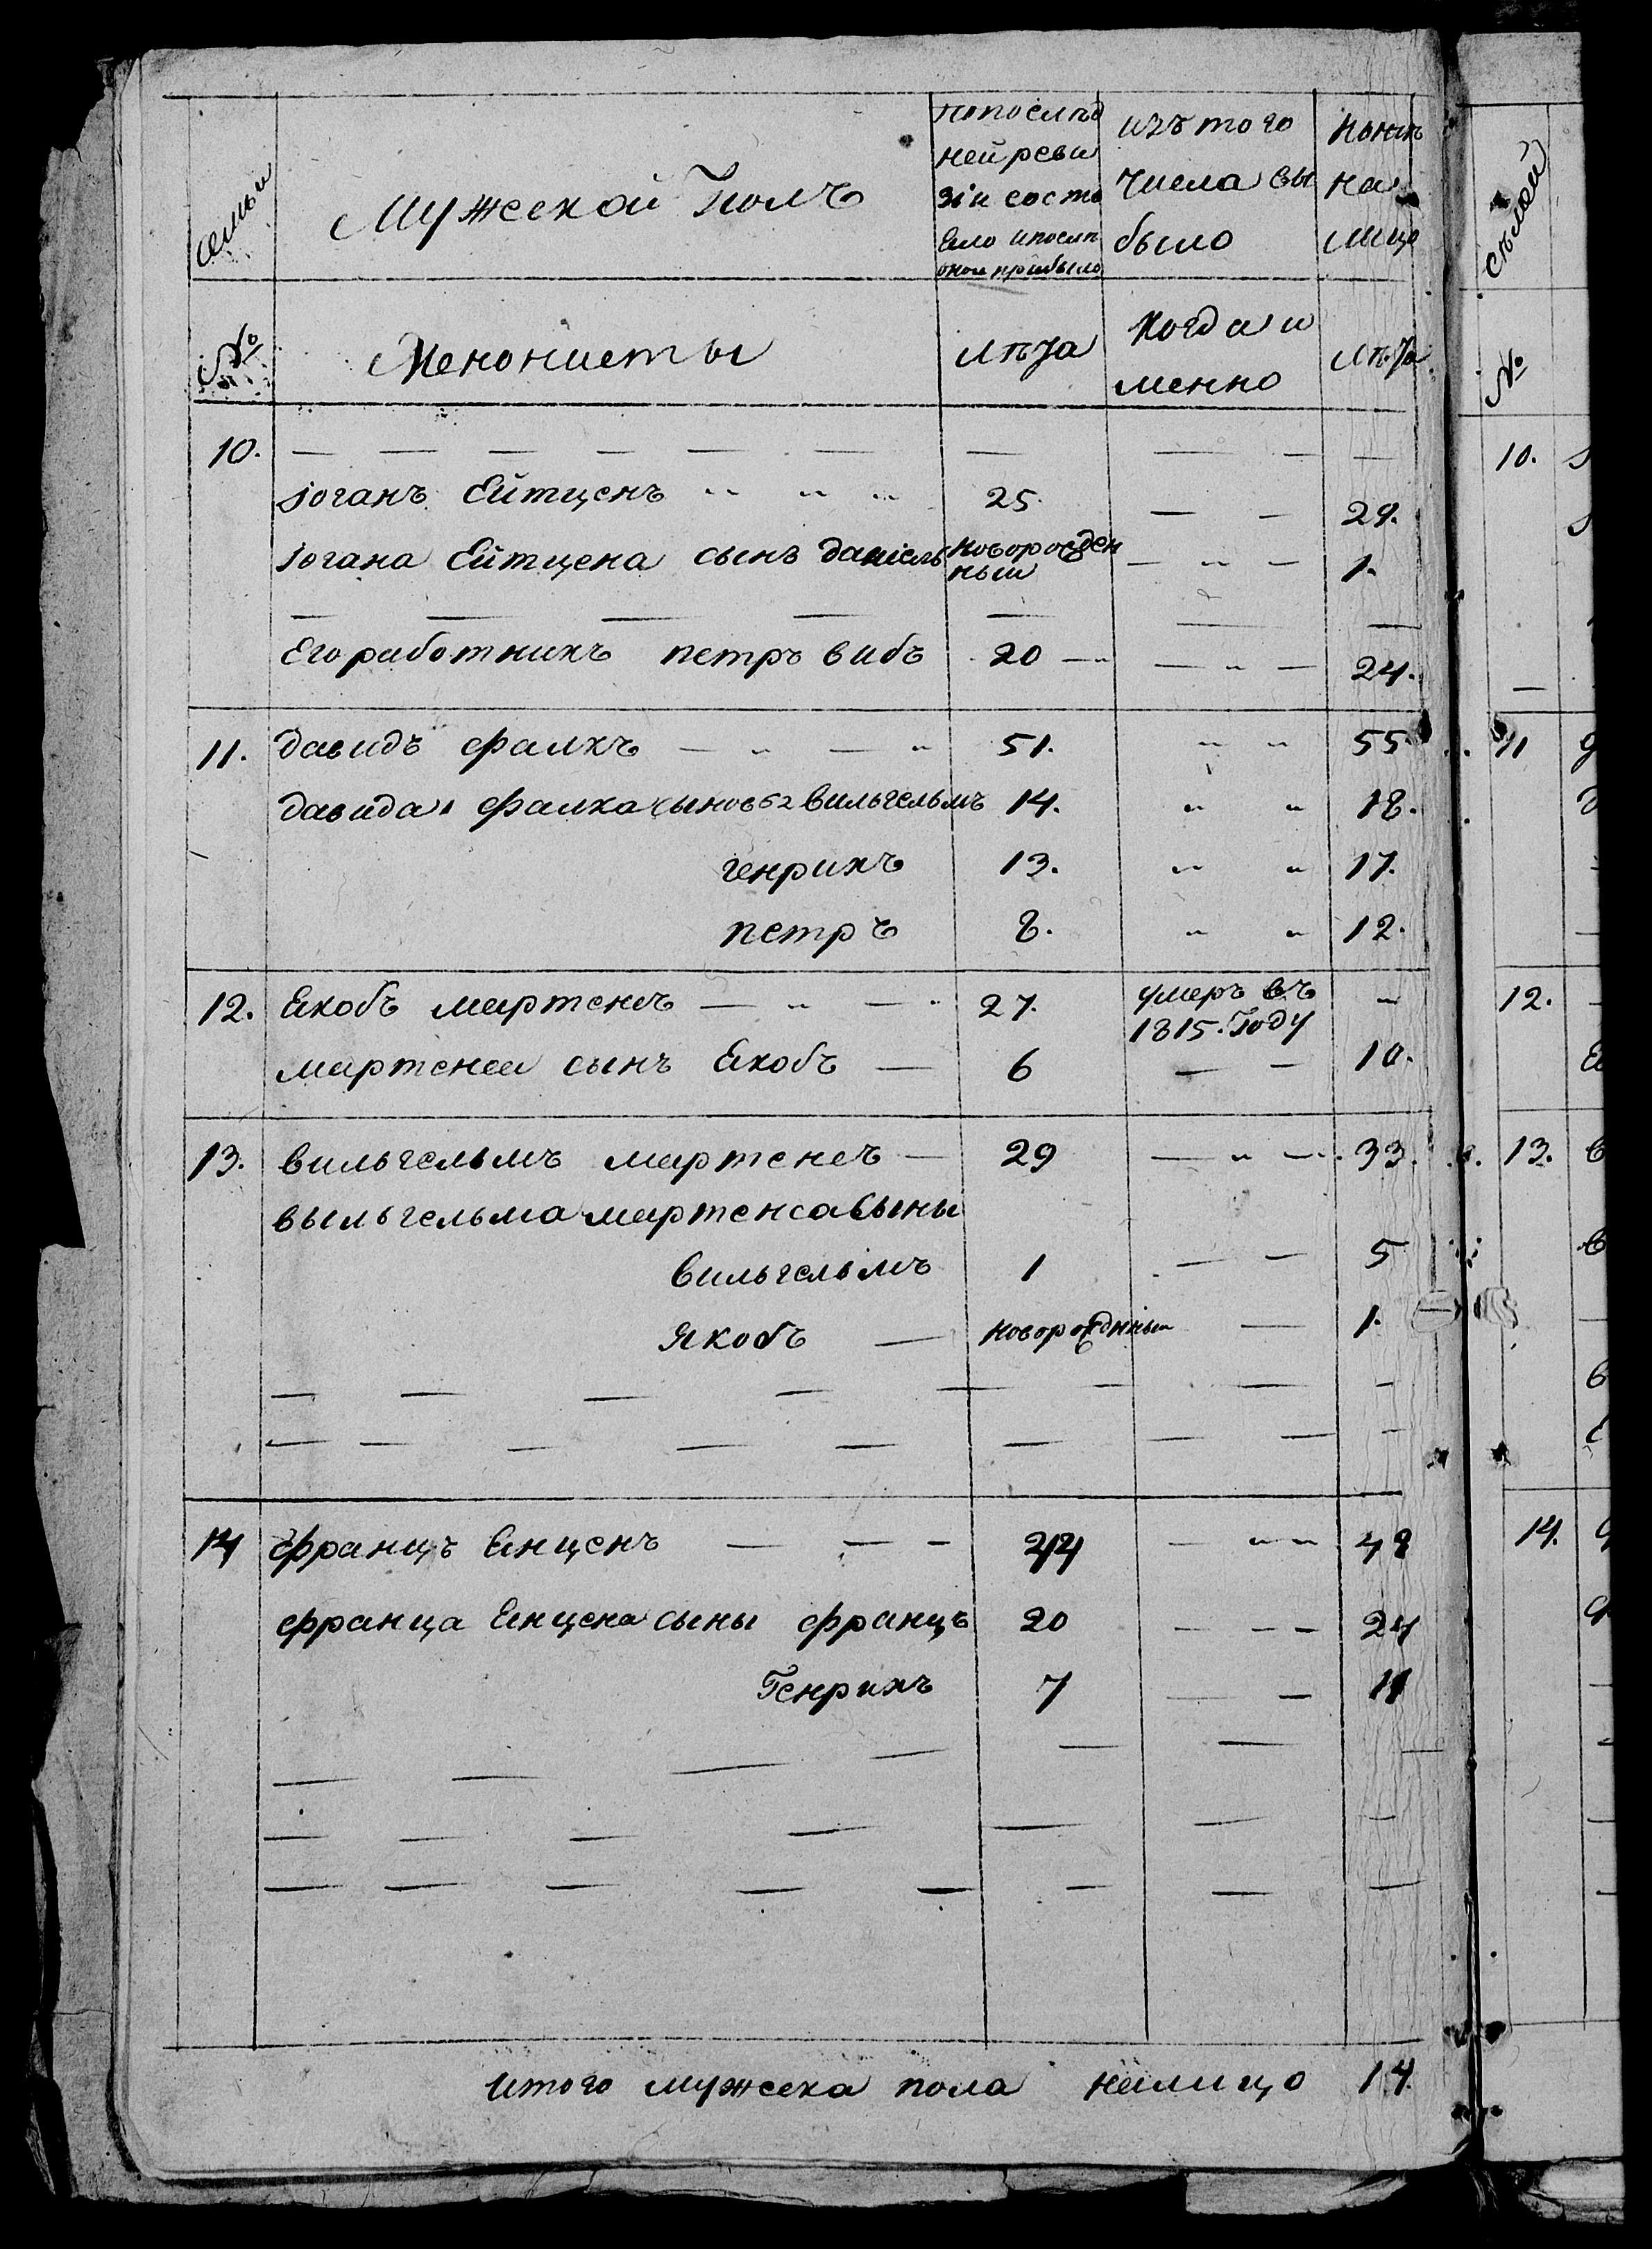 семьи
Мужеской Полъ
по послѣд
ней реви
зіи состо
яло и послѣ
оной прибыло
изъ того
числа вы
было
нынѣ
на
лицо
№
Менонисты
лѣта
Когда и
менно
лѣта
10. — — — — — — — — — —
Іоганъ Ейтценъ " " " 25. — — 29.
Іогана Ейтцена сынъ даніель новорожден
ный — " — 1.
— — — — — — —
Его работникъ петръ вибъ 20 — — " — 24.
11. давидъ фалкъ — " — " 51. " " 55.
давида фалка сыновья вильгельмъ 14. " " 18.
генрихъ 13. " " 17.
петръ 8. " " 12.
12. Якобъ мартенсъ — " — " 27. умеръ въ
1815. Году —
мартенса сынъ Якобъ — 6 — — 10.
13. вильгельмъ мартенсъ — 29 — " — 33.
выльгельма мартенса сыны
вильгельмъ 1 — — 5
Якобъ — новорожднный — 1.
— — — — — — — —
— — — — — — — — —
14 францъ Янценъ — — — 44 — " " 48
франца Янцена сыны францъ 20 — — — 24
Генрихъ 7 — — 11
— — — — — — —
— — — — — — —
— — — — — — — —
итого мужеска пола налицо 14.
семей
№
10.
11
12.
13.
14.